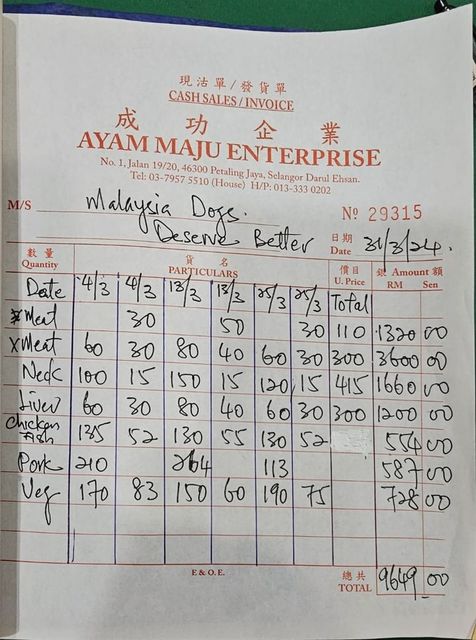 現沽單/發貨單
CASH SALES / INVOICE
成功企業
AYAM MAJU ENTERPRISE
No. 1, Jalan 19/20, 46300 Petaling Jaya, Selangor Darul Ehsan.
Tel: 03-7957 5510 (House) H/P: 013-333 0202
M/S Malaysia Dogs. Nº 29315
Deserve Better 日期 Date 31/3/24.
數量 Quantity 貨名 PARTICULARS 價目 U. Price 銀 Amount 額 RM Sen
Date 4/3 4/3 13/3 13/3 25/3 25/3 Total
*Meat 30 50 30 110 1320 00
xMeat 60 30 80 40 60 30 300 3600 00
Neck 100 15 150 15 120 15 415 1660 00
Liver 60 30 80 40 60 30 300 1200 00
Chicken Fish 135 52 130 55 130 52 554 00
Pork 210 264 113 587 00
Veg 170 83 150 60 190 75 728 00
E & O. E. 總共 TOTAL 9649 00